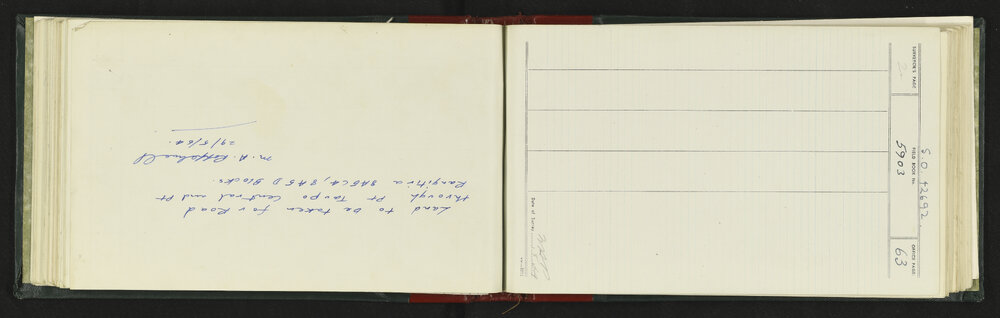 Land to be taken for Road
through Pt Taupo Central and Pt
Rangitira 8A6C4, 8A6D Blocks.
M. A.
29/5/64.
SURVEYOR'S PAGE
2
FIELD BOOK No.
5903
OFFICE PAGE
63
S.O. 42692.
Date of Survey